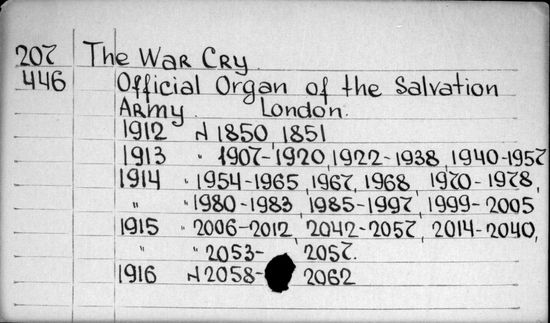 207 The WAR CRY
446 Official Organ of the Salvation
ARMY. London.
1912 N 1850, 1851
1913 " 1907-1920, 1922-1938, 1940-1957
1914 " 1954-1965, 1967, 1968, 1970-1978,
" " 1980-1983, 1985-1997, 1999-2005
1915 " 2006-2012, 2042-2057, 2014-2040,
" " 2053- 2057.
1916 N 2058- 2062